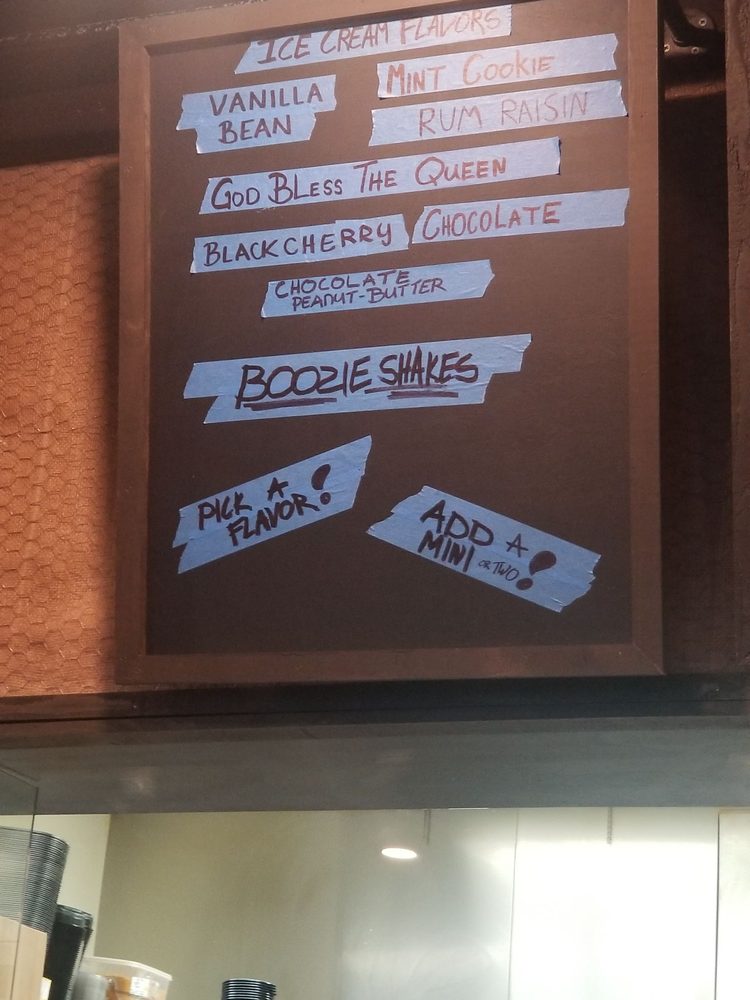 ICE CREAM FLAVORS
MINT COOKIE
VANILLA
BEAN
RUM RAISIN
GOD BLESS THE QUEEN
BLACK CHERRY
CHOCOLATE
CHOCOLATE
PEANUT-BUTTER
BOOZIE SHAKES
PICK A
FLAVOR!
ADD A
MINI OR TWO!